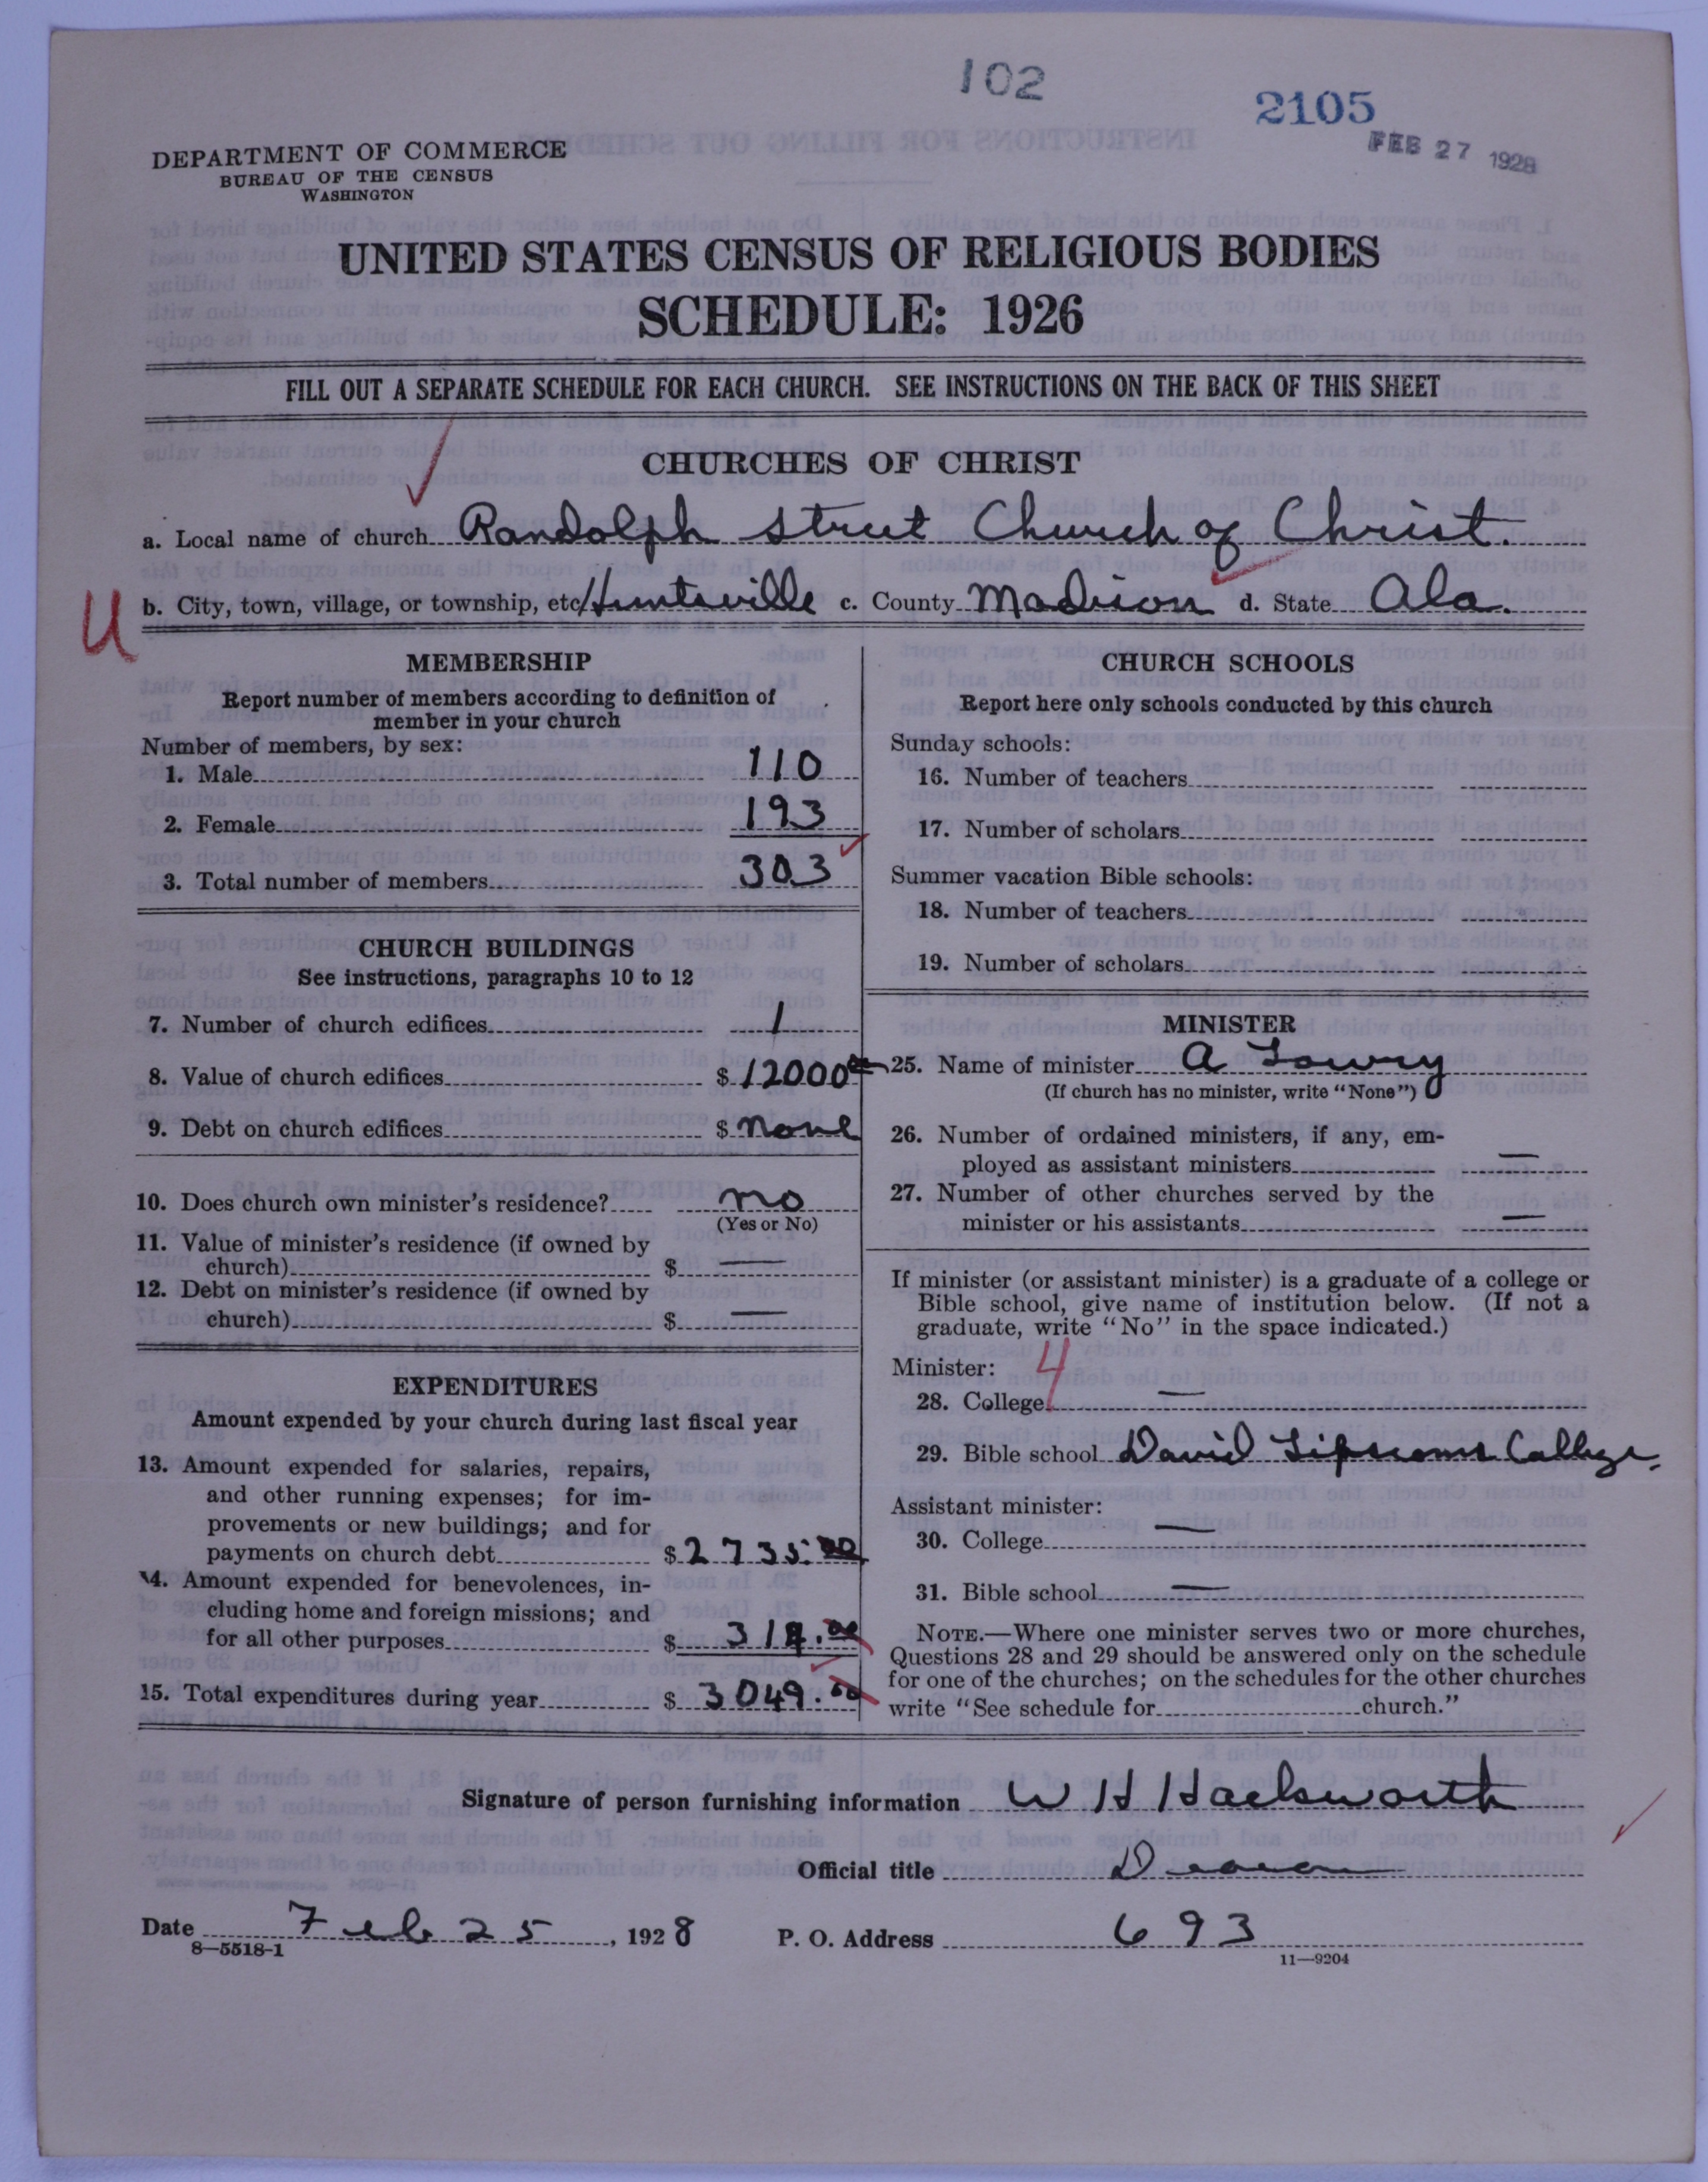 102
2105
FEB 27 1928
DEPARTMENT OF COMMERCE
BUREAU OF THE CENSUS
WASHINGTON
UNITED STATES CENSUS OF RELIGIOUS BODIES
SCHEDULE: 1926
FILL OUT A SEPARATE SCHEDULE FOR EACH CHURCH. SEE INSTRUCTIONS ON THE BACK OF THIS SHEET
CHURCHES OF CHRIST
a. Local name of church Randolph Street Church of Christ.
U
b. City, town, village, or township, etc. Huntsville c. County Madison d. State Ala.
MEMBERSHIP
Report number of members according to definition of
member in your church
Number of members, by sex:
1. Male 110
2. Female 193
3. Total number of members 303
CHURCH BUILDINGS
See instructions, paragraphs 10 to 12
7. Number of church edifices 1
8. Value of church edifices $ 12000 00
9. Debt on church edifices $ none
10. Does church own minister's residence? no
(Yes or No)
11. Value of minister's residence (if owned by
church) $ —
12. Debt on minister's residence (if owned by
church) $ —
EXPENDITURES
Amount expended by your church during last fiscal year
13. Amount expended for salaries, repairs,
and other running expenses; for im-
provements or new buildings; and for
payments on church debt $ 2735.00
14. Amount expended for benevolences, in-
cluding home and foreign missions; and
for all other purposes $ 314.00
15. Total expenditures during year $ 3049.00
CHURCH SCHOOLS
Report here only schools conducted by this church
Sunday schools:
16. Number of teachers
17. Number of scholars
Summer vacation Bible schools:
18. Number of teachers
19. Number of scholars
MINISTER
25. Name of minister A Lowry
(If church has no minister, write "None")
26. Number of ordained ministers, if any, em-
ployed as assistant ministers —
27. Number of other churches served by the
minister or his assistants —
If minister (or assistant minister) is a graduate of a college or
Bible school, give name of institution below. (If not a
graduate, write "No" in the space indicated.)
Minister: 4
28. College —
29. Bible school David Lipscomb College.
Assistant minister:
30. College —
31. Bible school —
NOTE.—Where one minister serves two or more churches,
Questions 28 and 29 should be answered only on the schedule
for one of the churches; on the schedules for the other churches
write "See schedule for church."
Signature of person furnishing information W H Hackworth
Official title Deacon
Date Feb 25, 1928 P. O. Address 693
8—5518-1
11—9204